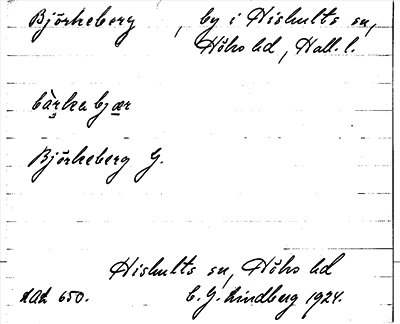 Björkeberg, by i Hishults sn,
Höks hd, Hall. l.
bàrkabjær
Björkeberg G.
Hishults sn, Höks hd
650. C. G. Lindberg 1924.